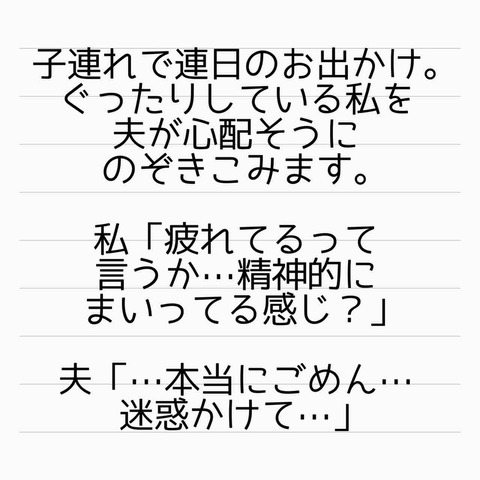 子連れで連日のお出かけ。
ぐったりしている私を
夫が心配そうに
のぞきこみます。
私「疲れてるって
言うか…精神的に
まいってる感じ？」
夫「…本当にごめん…
迷惑かけて…」